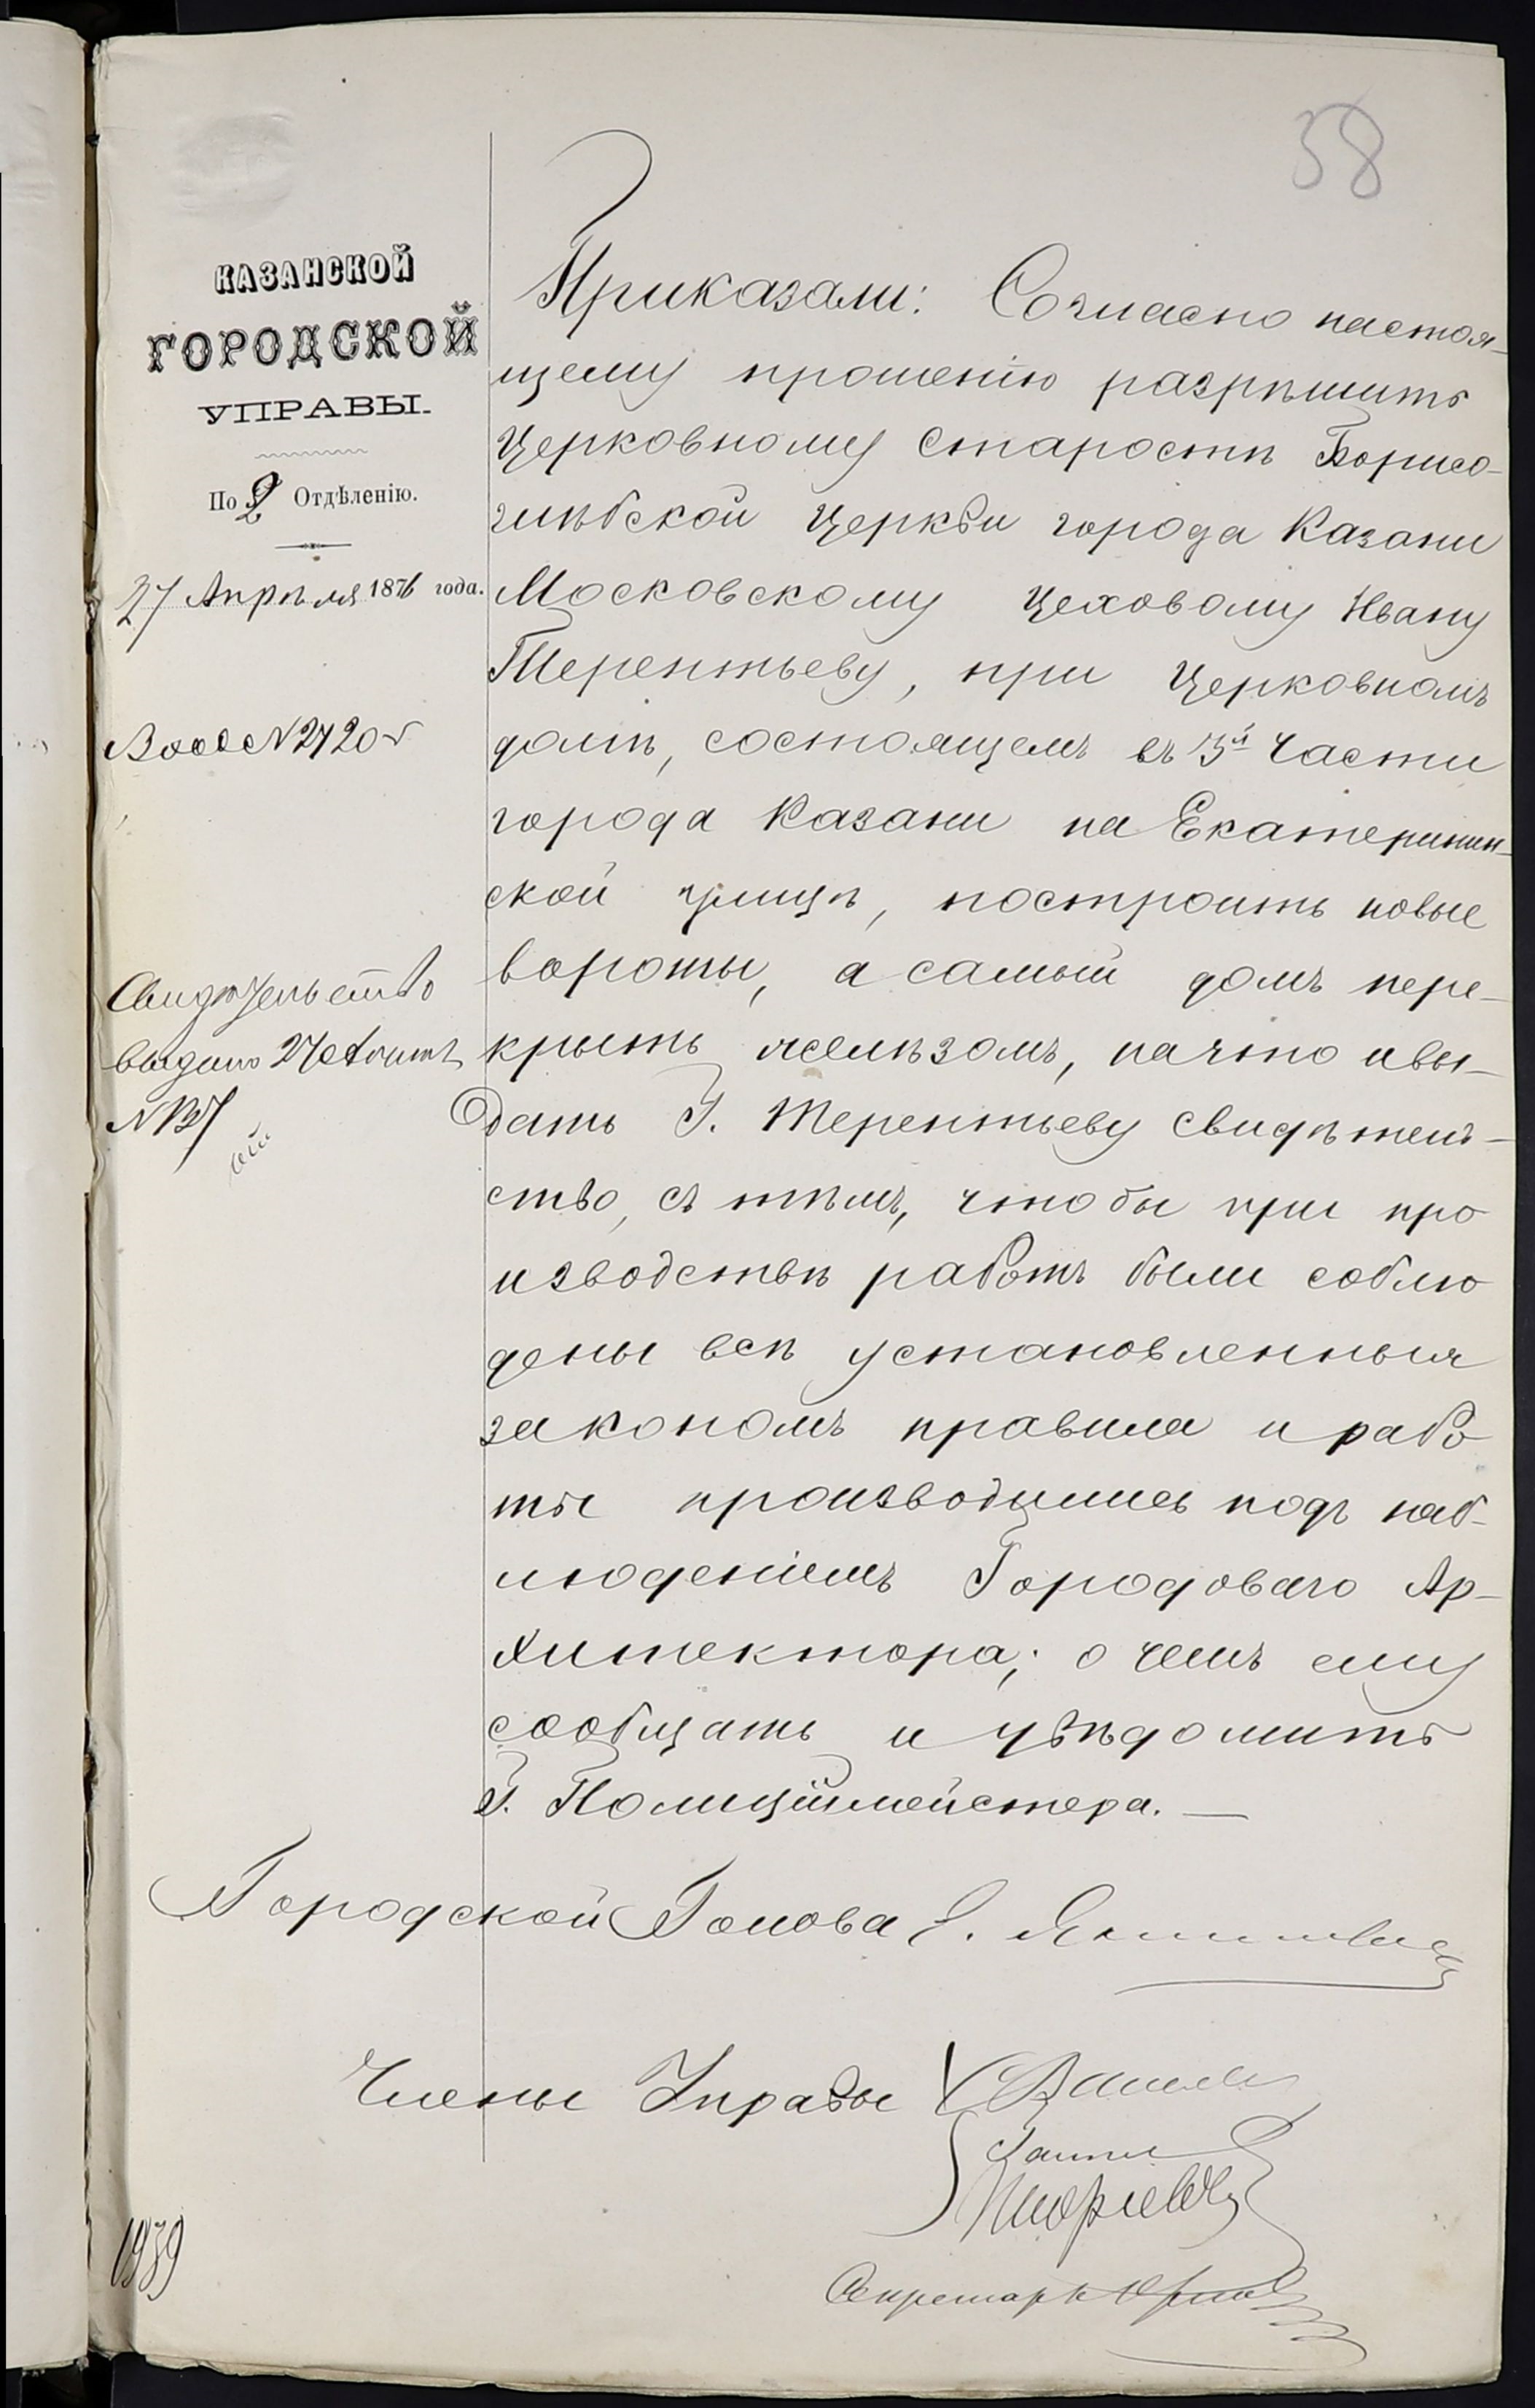 38
КАЗАНСКОЙ
ГОРОДСКОЙ
УПРАВЫ.
По 2 Отдѣленію.
27 Апрѣля 1876 года.
№ 2720
Свидѣтельство
выдано 27
Приказали: Согласно настоя-
щему прошенію разрѣшить
Церковному Старостѣ Борисо-
глѣбской Церкви города Казани
Московскому Цеховому Ивану
Терентьеву, при Церковномъ
домѣ, состоящемъ въ 3й части
города Казани на Екатеринин-
ской улицѣ, построить новые
вороты, а самый домъ пере-
крыть желѣзомъ, на что и вы-
дать Г. Терентьеву свидѣтель-
ство, съ тѣмъ, чтобы при про
изводствѣ работъ были соблю
дены всѣ установленныя
закономъ правила и рабо
ты производились подъ наб-
люденіемъ Городоваго Ар-
хитектора; о чемъ ему
сообщать и увѣдомить
Г. Полиціймейстера. —
Городской Голова Е.
Члены Управы
Секретарь
1939